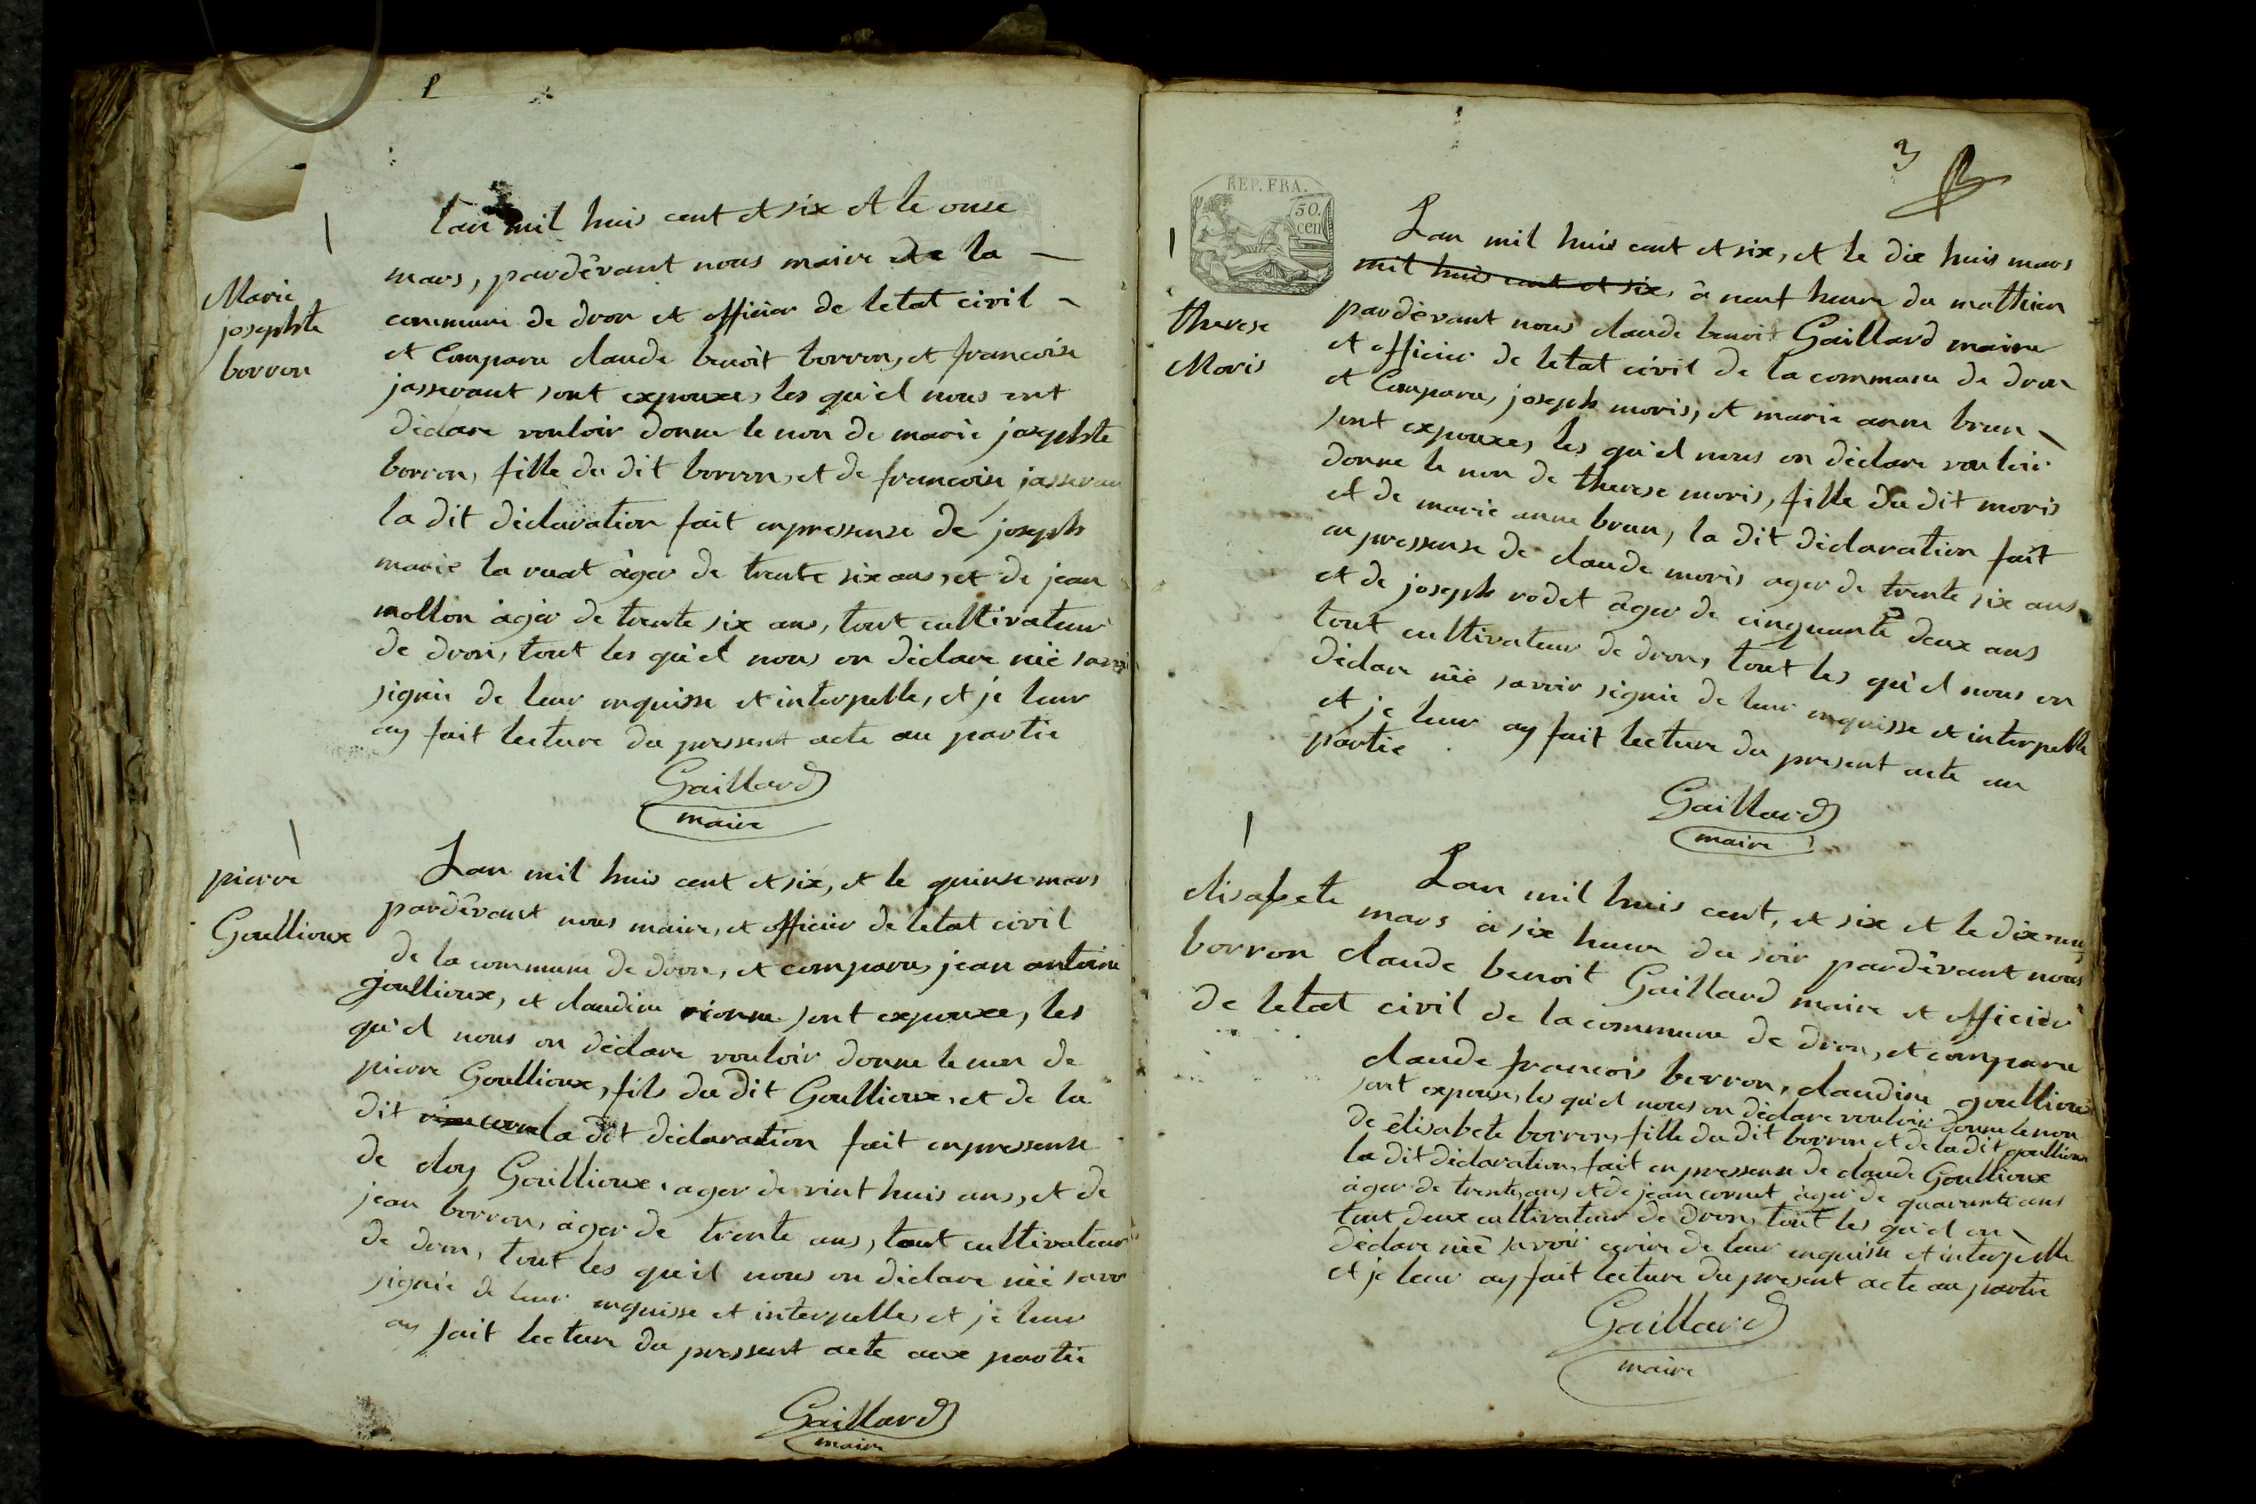 Marie
josephte
borron
lan mil huis cent et six et le onse
mars, pardêvant nous maire de la —
commune de dron et officier de letat civil –
et Comparu claude benoit borron, et francoise
jasserant sont expouxe, les qu'el nous ont
dèclare vouloir donne le non de marie josephte
borron, fille du dit borron, et de francoise jasseran
la dit dèclaration fait enpressense de joseph
marie la ruat âger de trente six ans, et de jean
mollon âger de trente six ans, tout cultivateur
de dron, tout les qu'el nous on dèclare niè savoi
signie de leur enquisse et interpelle, et je leur
ay fait lecture du pressent acte au partie
Gaillard
maire
pierre
Goullioux
Lan mil huis cent et six, et le quinse mars
pardêvant nous maire, et officier de letat civil
de la commune de dron, et comparu, jean antoine
goullioux, et claudine sont expouxe, les
qu'el nous on dèclare vouloir donne le non de
pierre Goullioux, fils du dit Goullioux, et de la
dit la dit dèclaration fait enpressense
de eloy Goullioux, ager de vint huis ans, et de
jean borron, âger de trente ans, tout cultivateur
de dron, tout les qu'il nous on dèclare niè savoi
signie de leur enquisse et interpelle, et je leur
ay fait lecture du pressent acte aux partie
Gaillard
maire
3
REP. FRA.
50.
cen
therese
Moris
Lan mil huis cent et six, et le dix huis mars
mil huis cent et six, â neuf heure du mathien
pardèvant nous claude benoit Gaillard maire
et officier de letat civil de la commune de dron
et Comparu, joseph moris, et marie anne brun
sont expouxe, les qu'el nous on dèclare vouloir
donne le non de therese moris, fille du dit moris
et de marie anne brun, la dit dèclaration fait
enpressense de claude moris ager de trente six ans
et de joseph rodet âger de cinquante deux ans
tout cultivateur de dron, tout les qu'el nous on
dèclare niè savoir signie de leur enquisse et interpelle
et je leur ay fait lecture du present acte au
partie
Gaillard
maire
elisabete
borron
Lan mil huis cent, et six et le dix neuf
mars â six heure du soir pardêvant nous
claude benoit Gaillard maire et officier
de letat civil de la commune de dron, et comparu
claude francois borron, claudine goullioux
sont expouse, les qu'el nous on dèclare vouloir donne le non
de èlisabete borron, fille du dit borron et de la dit goullioux
la dit dèclaration, fait enpressense de claude Goullioux
âger de trente ans et de jean cornet âger de quarante ans
tout deux cultivateur de dron, tout les qu'el on
dèclare niè savoir ecrire de leur enquise et interpelle
et je leur ay fait lecture du present acte au partie
Gaillard
maire